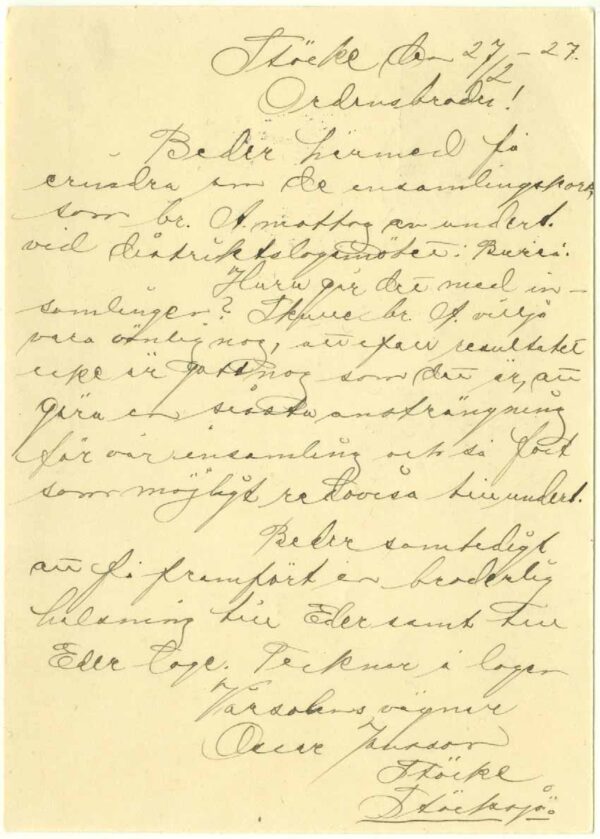 Stöcke den 27/2 - 27.
Ordensbroder!
Beder härmed få
erindra om de insamlingskort,
som br. A. mottog av undert.
vid distriktslogemötet i Bureå.
Huru går det med in-
samlingen? Skulle br. A. vilja
vara vänlig nog, att ifall resultatet
icke är gott nog som det är, att
göra en sista ansträngning
för vår insamling och så fort
som möjligt redovisa till undert.
Beder samtidigt
att få framfört en broderlig
hälsning till Eder samt till
Eder loge. Tecknar i logen
Vårsolens vägnar
Oscar Jansson
Stöcke
Stöcksjö.